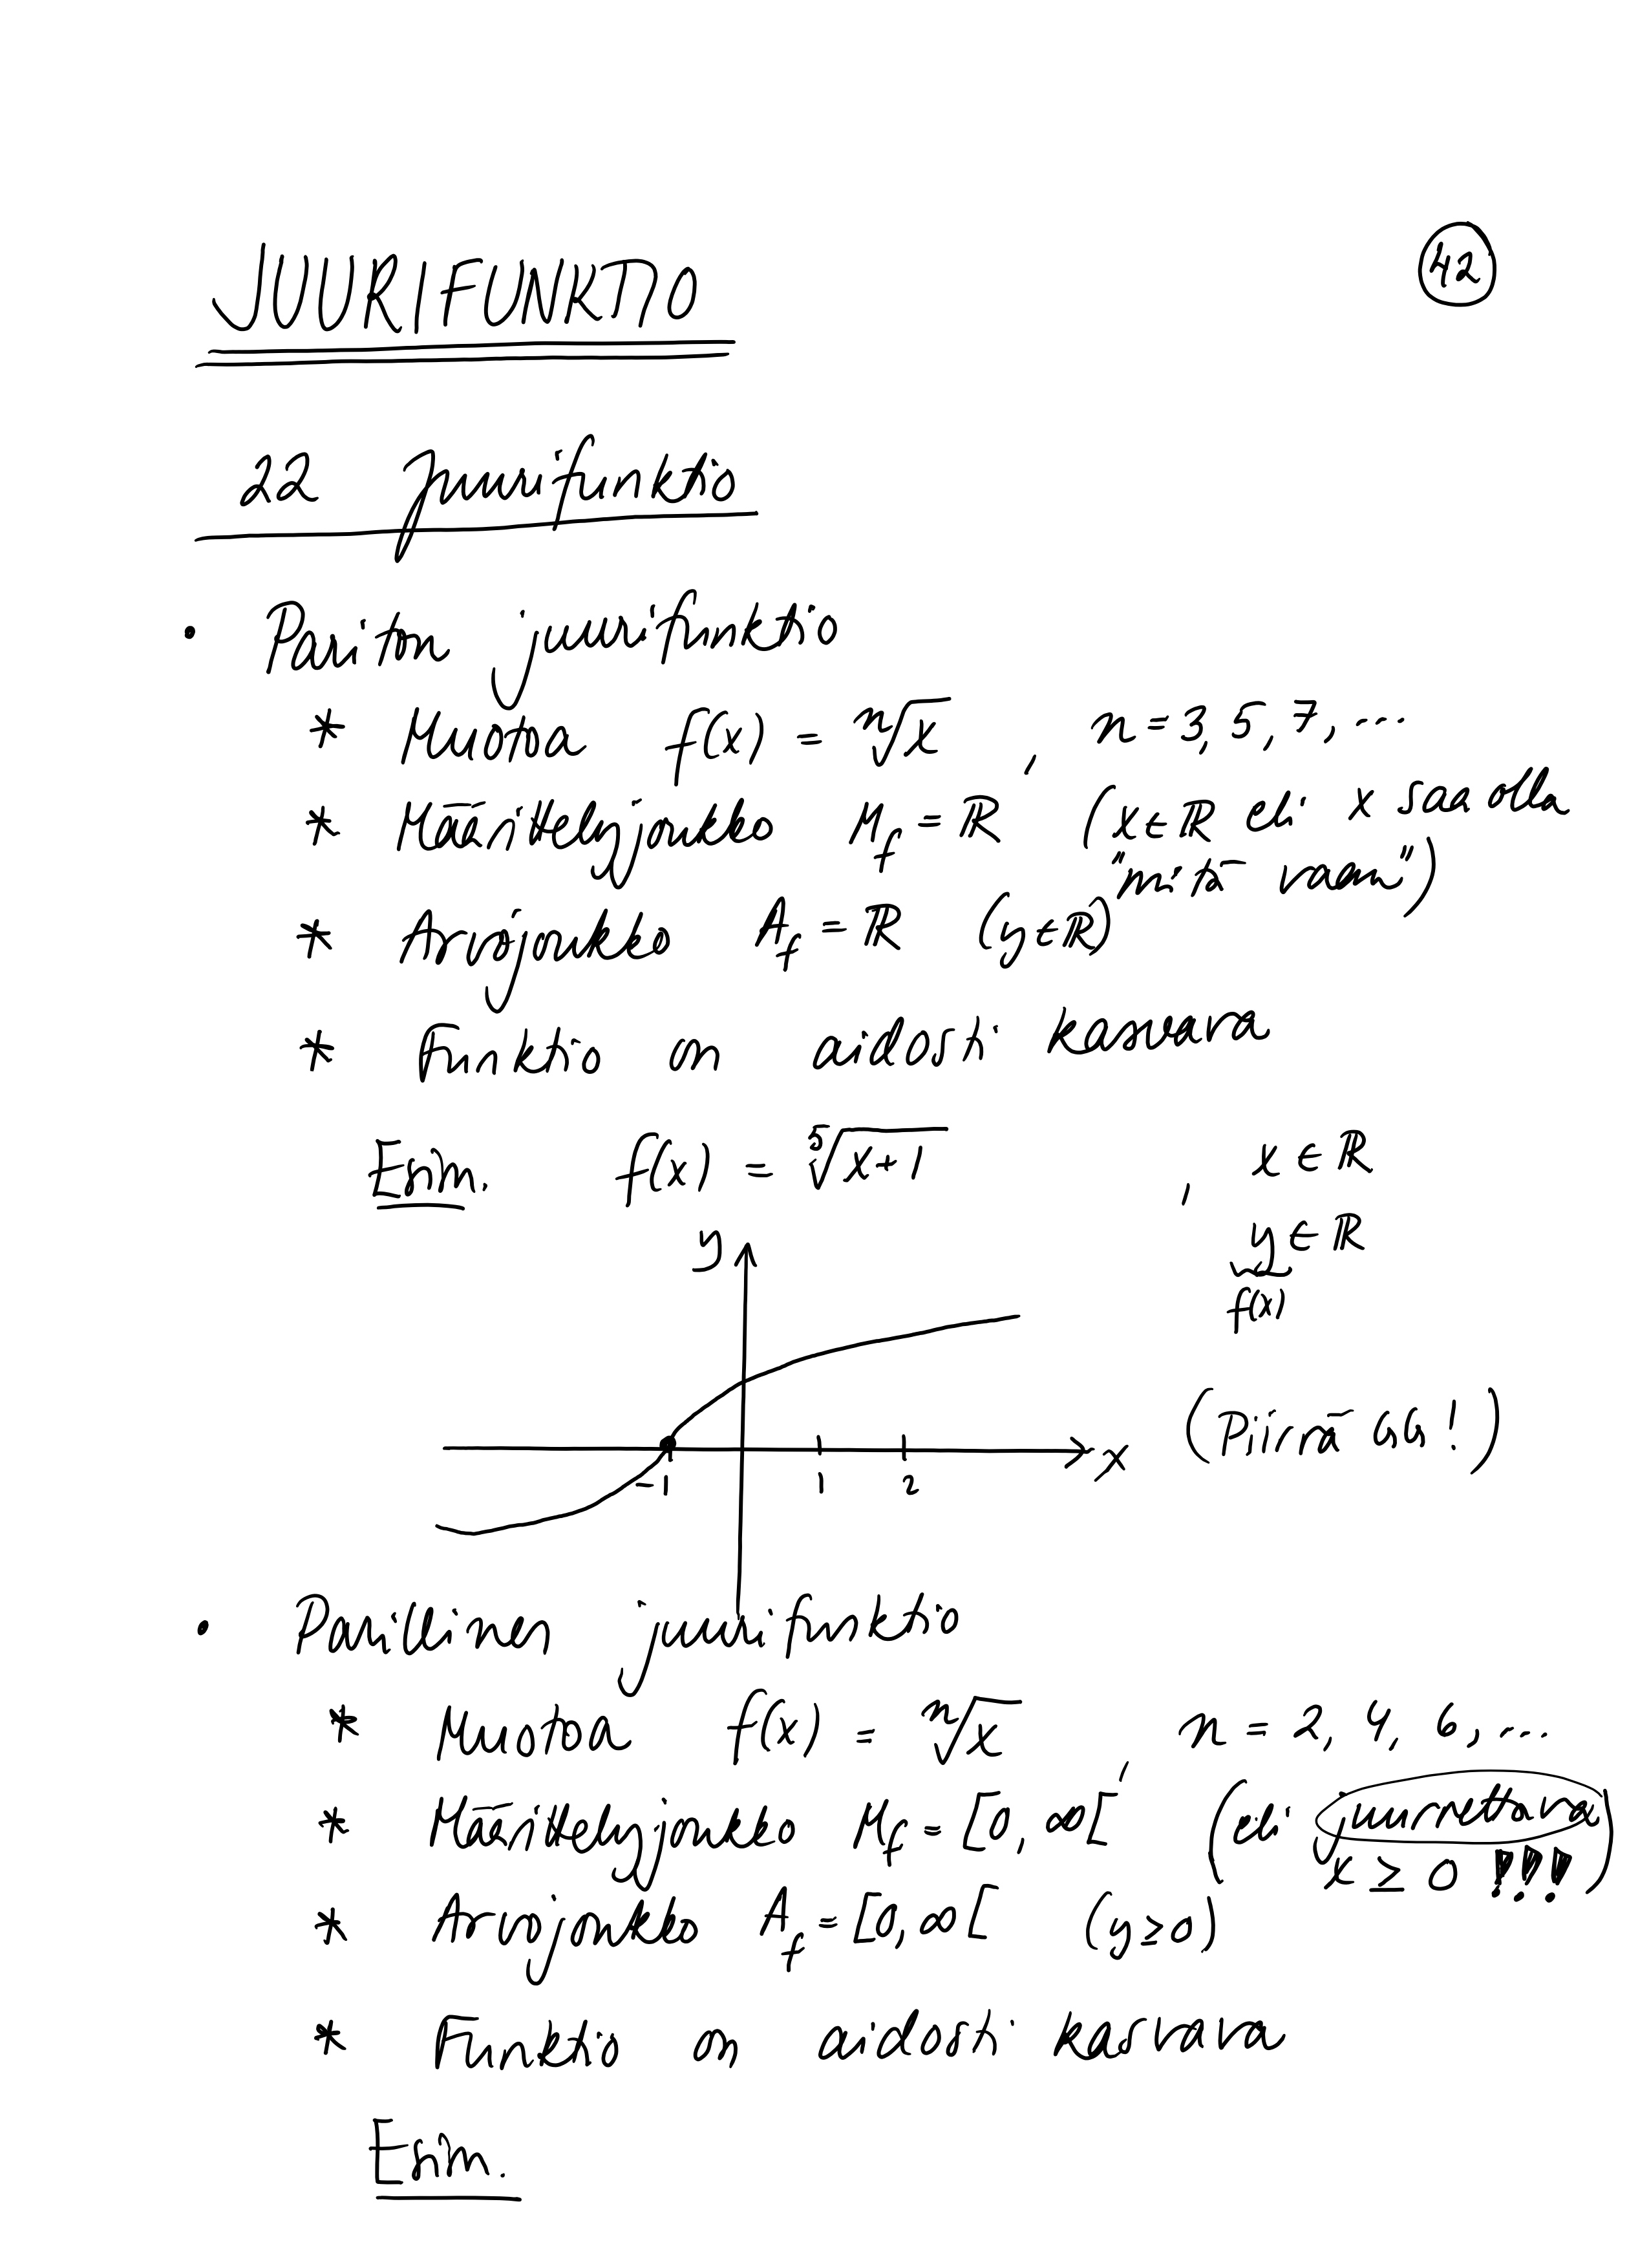 JUURIFUNKTIO
42
22 Juurifunktio
• Pariton juurifunktio
* Muotoa f(x) = ⁿ√x , n = 3, 5, 7, ...
* Määrittelyjoukko M_f = ℝ (x ∈ ℝ eli x saa olla
"mitä vaan")
* Arvojoukko A_f = ℝ (y ∈ ℝ)
* Funktio on aidosti kasvava
Esim. f(x) = ⁵√(x+1) , x ∈ ℝ
y ∈ ℝ
f(x)
y
(Piirrä GG!)
x
-1 1 2
• Parillinen juurifunktio
* Muotoa f(x) = ⁿ√x , n = 2, 4, 6, ...
* Määrittelyjoukko M_f = [0, ∞[ (eli juurrettava
x ≥ 0 !!!)
* Arvojoukko A_f = [0, ∞[ (y ≥ 0)
* Funktio on aidosti kasvava
Esim.